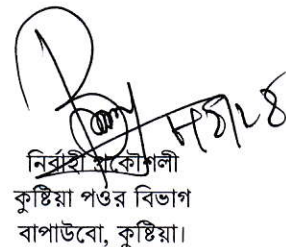 নির্বাহী প্রকৌশলী
কুষ্টিয়া পওর বিভাগ
বাপাউবো, কুষ্টিয়া।